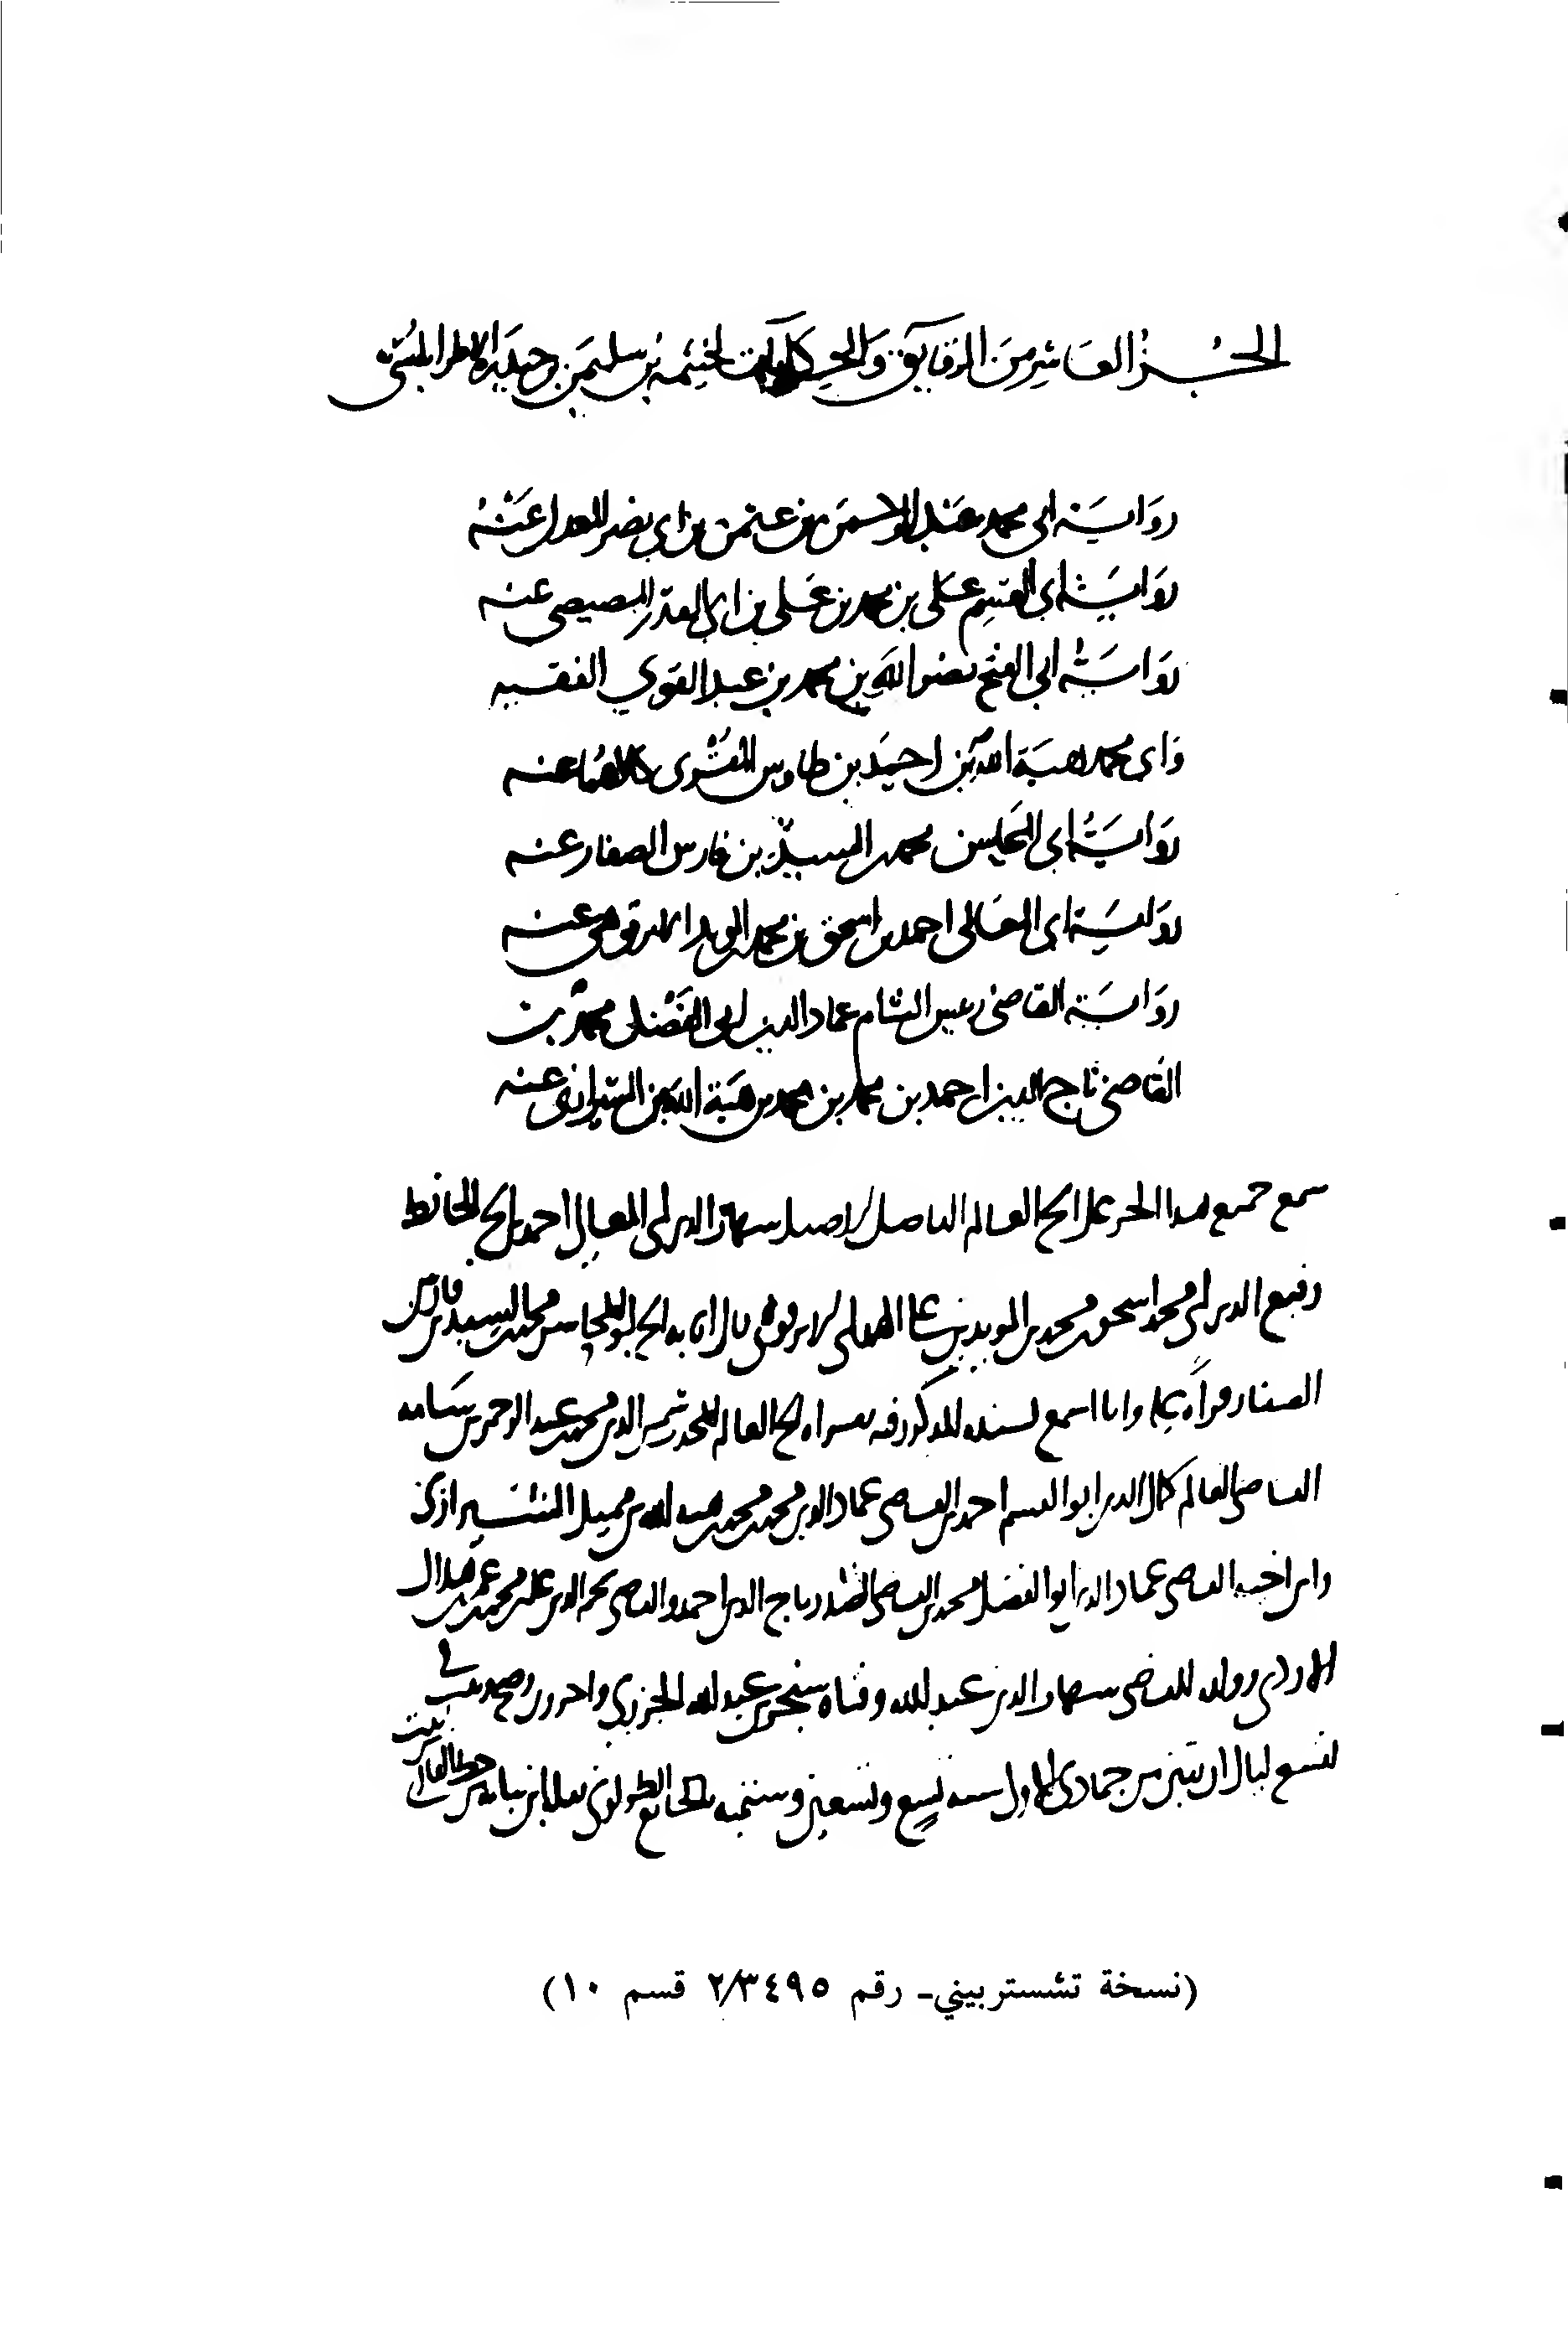 الجزء العاشر من الرقايق والحكايات لخيثمة بن سليمن بن حيدرة الاطرابلسي
رواية ابي محمد عبد الرحمن بن عثمن بن ابي نصر المعدل عنه
رواية ابي القسم علي بن محمد بن علي بن ابي العلا المصيصي عنه
رواية ابي الفتح نصر الله بن محمد بن عبد القوي الفقيه
وابي محمد هبة الله بن احمد بن طاوس المقرى كلاهما عنه
رواية ابي المحاسن محمد بن السيد بن فارس الصفار عنه
رواية ابي المعالي احمد بن اسحق بن محمد بن المويد الابرقوهي عنه
رواية القاضي رئيس الشام عماد الدين ابي الفضل محمد بن
القاضي تاج الدين احمد بن محمد بن محمد بن هبة الله بن الشيرازي عنه
سمع جميع هدا الجر على الشيح العالم الفاصل الاصيل سهاب الدين ابى المعالي احمد بن الشيح الحافظ
رفيع الدين ابي محمد اسحق بن محمد بن المويد بن علي الهمداني الابرقوهي المحاسن محمد بن السيد بن فارس
الصفار قراة عليه وانا اسمع بسنده المدكور فيه بقراة الشيح العالم المحدث شمس الدين محمد بن عبد الرحمن بن سامه
القاضي العالم كمال الدين ابو القسم احمد بن القاضي عماد الدين محمد بن محمد بن هبه الله بن مميل الشيرازي
وابن اخيه القاضي عماد الدين ابو الفضل محمد بن القاضي الصدر تاج الدين احمد والقاضي الدين علي بن محمد بن عمر بن هلال
الازدي وولده القاضي سهاب الدين عبد الله وفتاه سنجر بن عبد الله الجزري واخرون وصح وثبت في
لتسع ليال ان بقين من جمادى الاول سنه تسع وتسعين وستميه بالجامع الطولوني
(نسخة تشستربيتي- رقم ٢/٣٤٩٥ قسم ١٠)